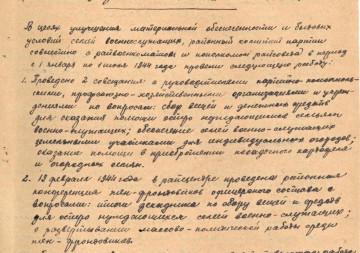 В целях улучшения материальной обеспеченности и бытовых
условий семей военнослужащих, районный комитет партии
совместно с райвоенкоматом и исполкомом райсовета в период
с 1 января по 1 июля 1944 года провели следующую работу:
1. Проведено 2 совещания с руководителями партийно-комсомоль-
скими, профсоюзно-хозяйственными организациями и учреж-
дениями по вопросам: сбор вещей и денежных средств
для оказания помощи остро нуждающимся семьям
военно-служащих; обеспечение семей военно-служащих
земельными участками для индивидуального огородов;
оказание помощи в приобретении посадочного картофеля
и огородных семян.
2. 13 февраля 1944 года в райцентре проведена районная
конференция жен-фронтовиков офицерского состава с
вопросами: итоги декадника по сбору вещей и средств
для остро нуждающихся семей военно-служащих;
о развертывании массово-политической работы среди
жен-фронтовиков.